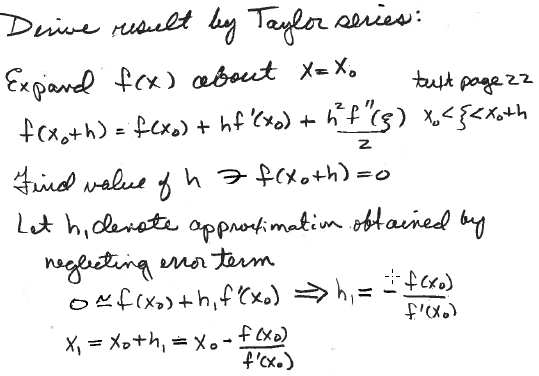 Derive result by Taylor series:
Expand f(x) about x = x₀
text page 22
f(x₀+h) = f(x₀) + hf'(x₀) + h²f''(ξ)/2 x₀<ξ<x₀+h
Find value of h ∋ f(x₀+h) = 0
Let h₁ denote approximation obtained by
neglecting error term
0 ≃ f(x₀) + h₁f'(x₀) ⟹ h₁ = - f(x₀)/f'(x₀)
x₁ = x₀+h₁ = x₀ - f(x₀)/f'(x₀)